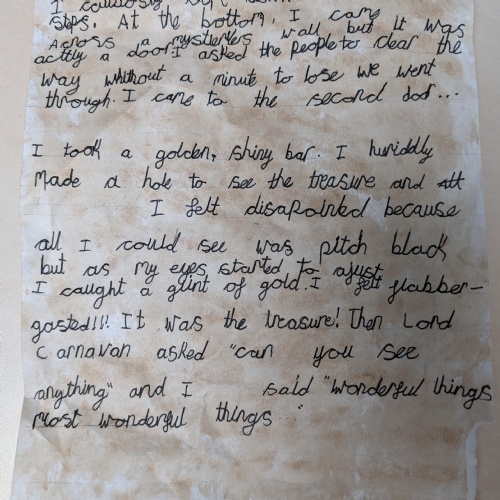 I
steps. At the bottom, I came
Across a mysteries wall but it was
acttly a door. I asked the people to clear the
way without a minute to lose we went
through. I came to the second door...
I took a golden, shiny bar. I huriddly
Made a hole to see the treasure and
I felt disapointed because
all I could see was pitch black
but as my eyes started to ajust
I caught a glint of gold. I felt flabber-
gasted!!! It was the treasure! Then Lord
Carnavan asked "can you see
anything" and I said "wonderful things
most wonderful things..."